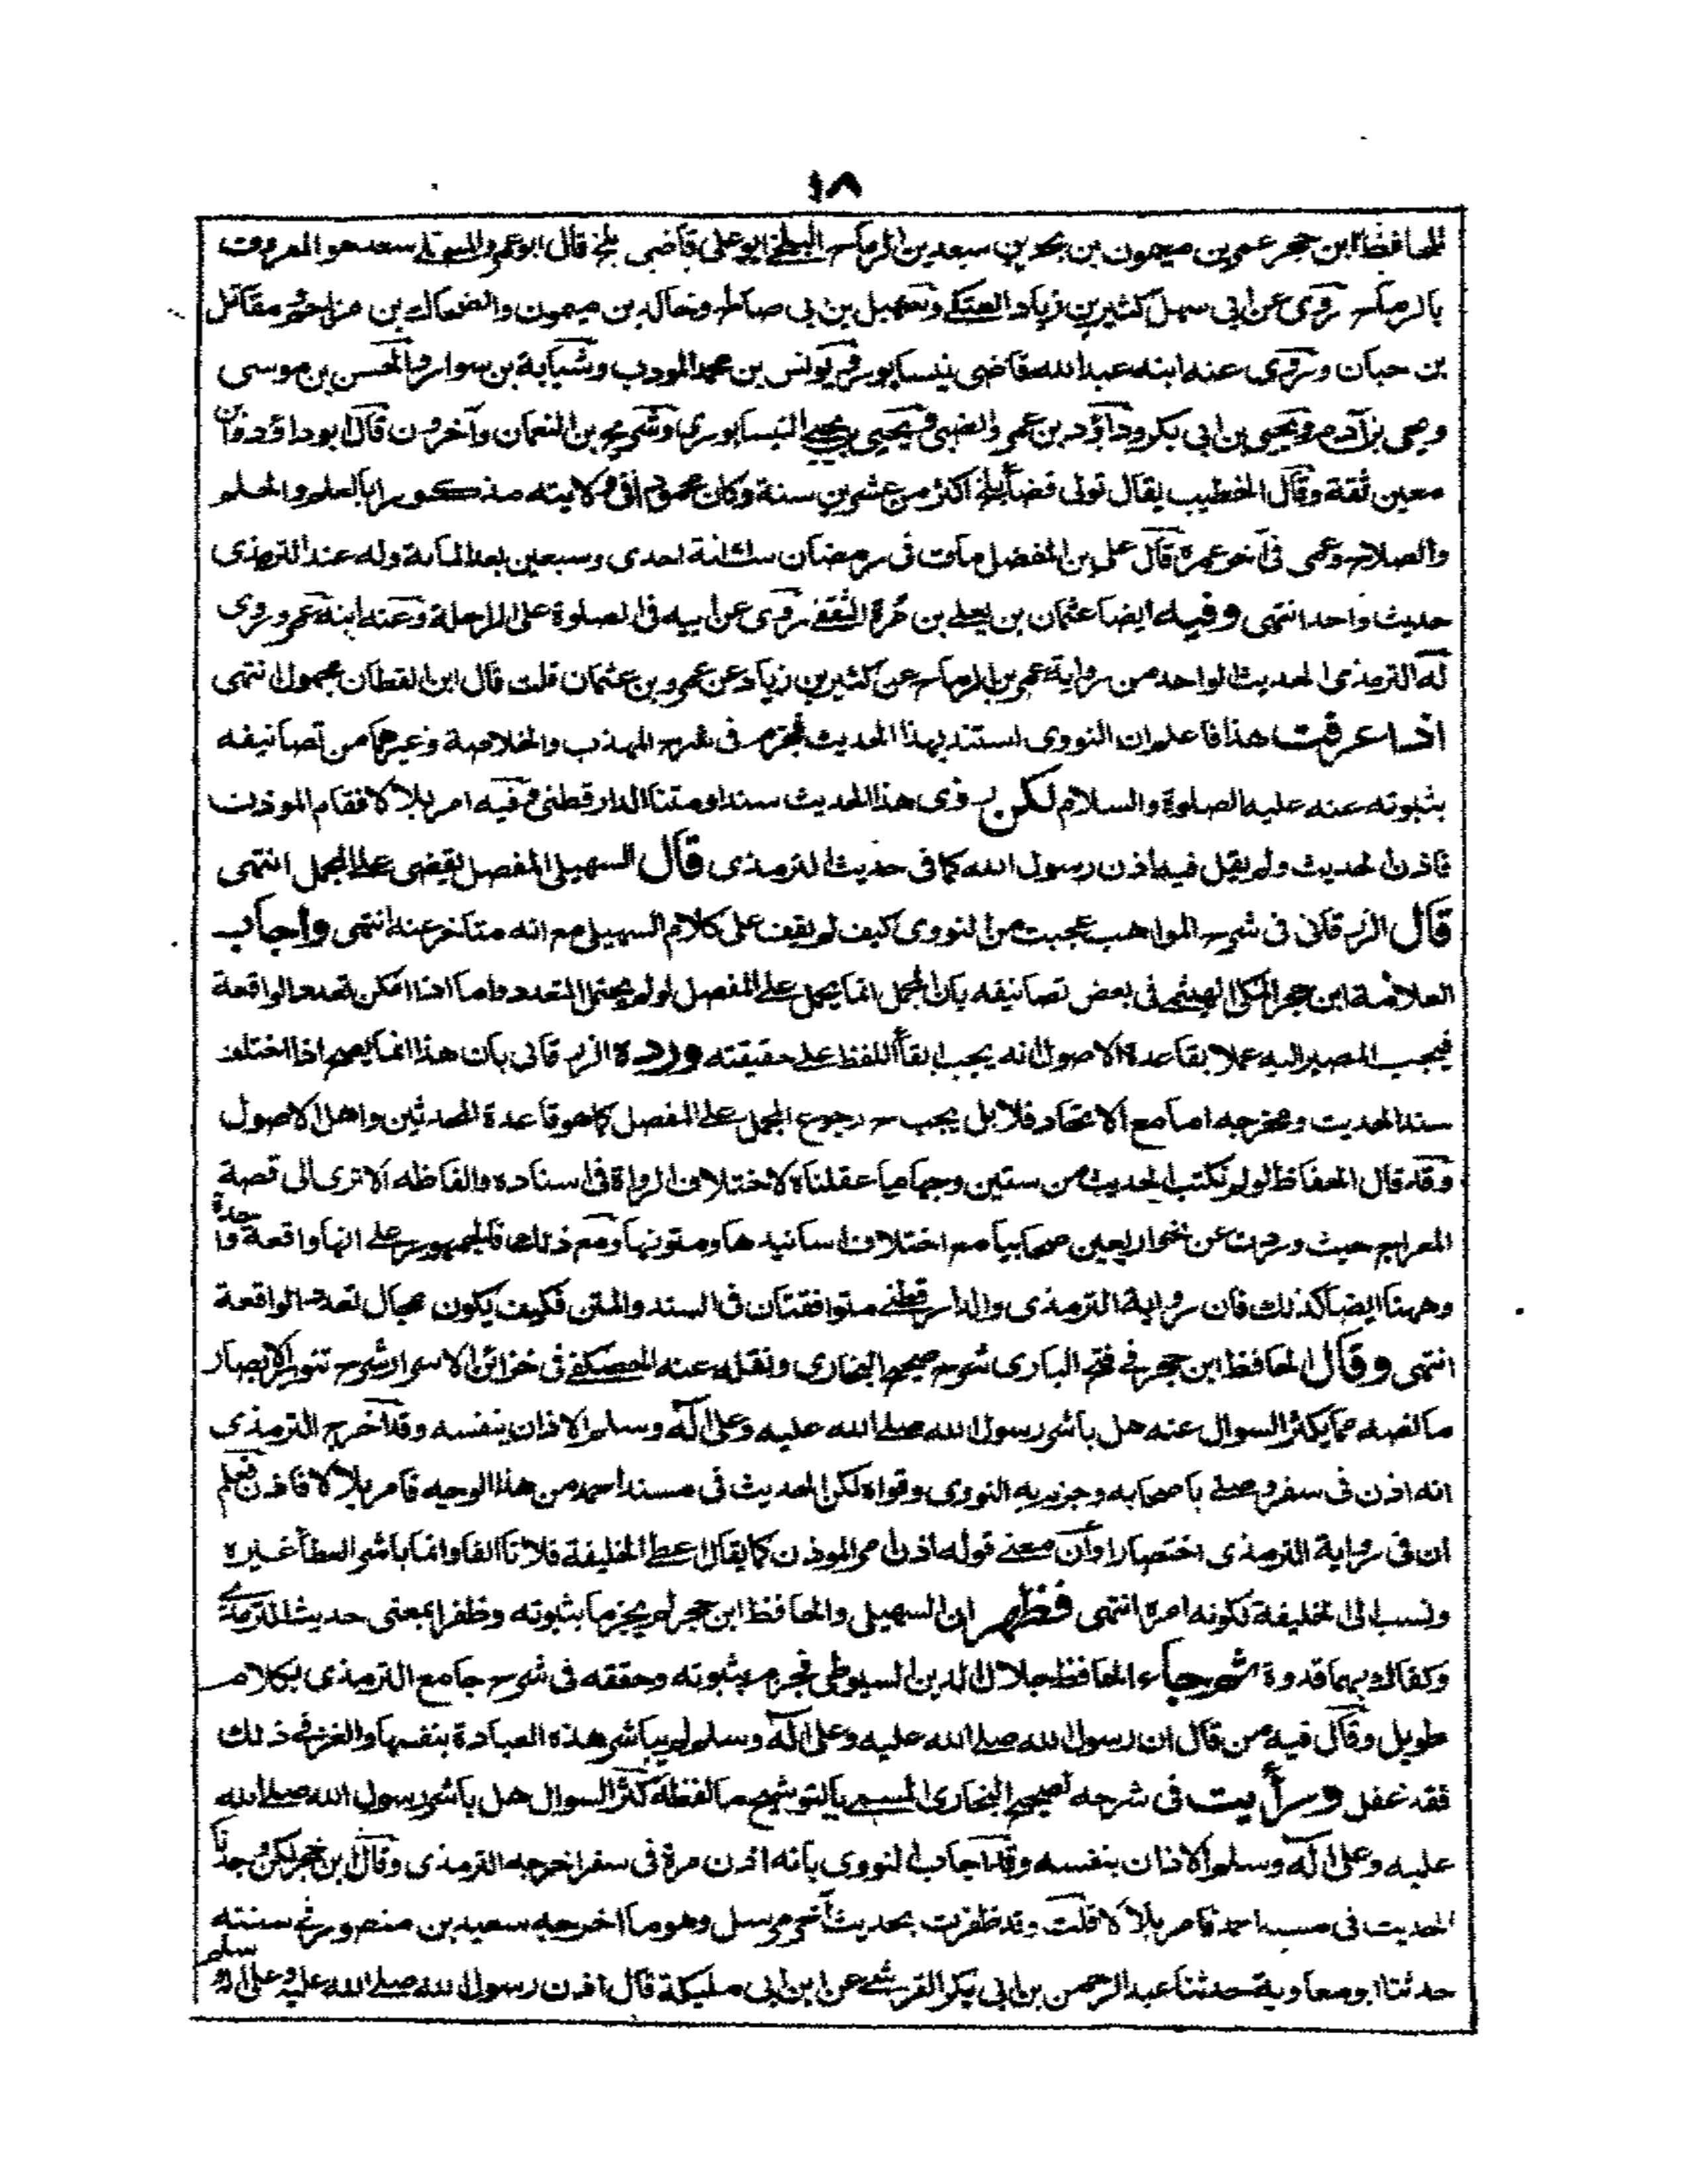 ١٨
للحافظ ابن حجر عمر بن ميمون بن بحر بن سعد بن الرماح البلخي ابو على قاضى بلخ قال ابو عمرو المستملي سعد هو المعروف
بالرماح روى عن ابى سهل كثير بن زياد العتكى وسهيل بن ابى صالح وخالد بن ميمون والضحاك بن مزاحم ومقاتل
بن حبان وروى عنه ابنه عبد الله قاضى نيسابور ويونس بن محمد المودب وشبابة بن سوار والحسن بن موسى
ويحيى بن آدم ويحيى بن ابى بكر وداؤد بن عمرو الضبى ويحيى بن يحيى النيسابورى وشريح بن النعمان وآخرون قال ابوداؤد وابن
معين ثقة وقال الخطيب يقال تولى قضاء بلخ اكثر من عشرين سنة وكان محمودا فى ولايته مذكورا بالعلم والحلم
والصلاح وعمى فى آخر عمره قال على بن المفضل مات فى رمضان سنة احدى وسبعين بعد المائة وله عند الترمذى
حديث واحد انتهى وفيه ايضا عثمان بن يعلى بن مرة الثقفى روى عن ابيه فى الصلوة على الراحلة وعنه ابنه عمرو روى
له الترمذى الحديث الواحد من رواية عمر بن الرماح عن كثير بن زياد عن عمرو بن عثمان قلت قال ابن القطان مجهول انتهى
اذا عرفت هذا فاعلم ان النووى استند بهذا الحديث فجزم فى شرح المهذب والخلاصة وغيرهما من تصانيفه
بثبوته عنه عليه الصلوة والسلام لكن روى هذا الحديث سندا ومتنا الدارقطنى وفيه امر بلالا فقام الموذن
فاذن الحديث ولم يقل فيه اذن رسول الله كما فى حديث الترمذى قال السهيلى المفصل يقضى على المجمل انتهى
قال الزرقانى فى شرح المواهب عجبت من النووى كيف لم يقف على كلام السهيلى مع انه متاخر عنه انتهى واجاب
العلامة ابن حجر المكى الهيثمى فى بعض تصانيفه بان المجمل انما يحمل على المفصل لو لم يحتمل التعدد واما اذا امكن تعدد الواقعة
فيجب المصير اليه عملا بقاعدة الاصول انه يجب ابقاء اللفظ على حقيقته ورده الزرقانى بان هذا انما يصح اذا اختلف
سند الحديث ومخرجه اما مع الاتحاد فلا بل يجب ح رجوع المجمل على المفصل كما هو قاعدة المحدثين واهل الاصول
وقد قال الحفاظ لو لم نكتب الحديث من ستين وجها ما عقلناه لاختلاف الرواة فى اسناده والفاظه الا ترى الى قصة
المعراج حيث وردت عن نحو اربعين صحابيا مع اختلاف اسانيدها ومتونها ومع ذلك فالجمهور على انها واقعة واحدة
وههنا ايضا كذلك فان رواية الترمذى والدارقطنى متوافقتان فى السند والمتن فكيف يكون مجال لتعدد الواقعة
انتهى وقال الحافظ ابن حجر فى فتح البارى شرح صحيح البخارى ونقله عنه الحصكفى فى خزائن الاسرار شرح تنوير الابصار
مالفظه مما يكثر السوال عنه هل باشر رسول الله صلى الله عليه وعلى آله وسلم الاذان بنفسه وقد اخرج الترمذى
انه اذن فى سفر وصلى باصحابه وجزم به النووى وقواه لكن الحديث فى مسند احمد من هذا الوجه فامر بلالا فاذن فعلم
ان فى رواية الترمذى اختصارا وان معنى قوله اذن امر الموذن كما يقال اعطى الخليفة فلانا الفا وانما باشر العطاء غيره
ونسب الى الخليفة لكونه امره انتهى فظهر ان السهيلى والحافظ ابن حجر لم يجزما بثبوته وظفرا بمعنى حديث الترمذى
وكفاك بهما قدوة ثم جاء الحافظ جلال الدين السيوطى فجزم بثبوته وحققه فى شرح جامع الترمذى بكلام
طويل وقال فيه من قال ان رسول الله صلى الله عليه وعلى آله وسلم لم يباشر هذه العبادة بنفسها والغز فى ذلك
فقد غفل ورأيت فى شرحه لصحيح البخارى المسمى بالتوشيح مالفظه كثر السوال هل باشر رسول الله صلى الله
عليه وعلى آله وسلم الاذان بنفسه وقد اجاب النووى بانه اذن مرة فى سفر اخرجه الترمذى وقال ابن حجر لكن وجدنا
الحديث فى مسند احمد فامر بلالا قلت وقد ظفرت بحديث آخر مرسل وهو ما اخرجه سعيد بن منصور فى سننه
حدثنا ابو معاوية حدثنا عبد الرحمن بن ابى بكر القرشى عن ابن ابى مليكة قال اذن رسول الله صلى الله عليه وعلى آله وسلم